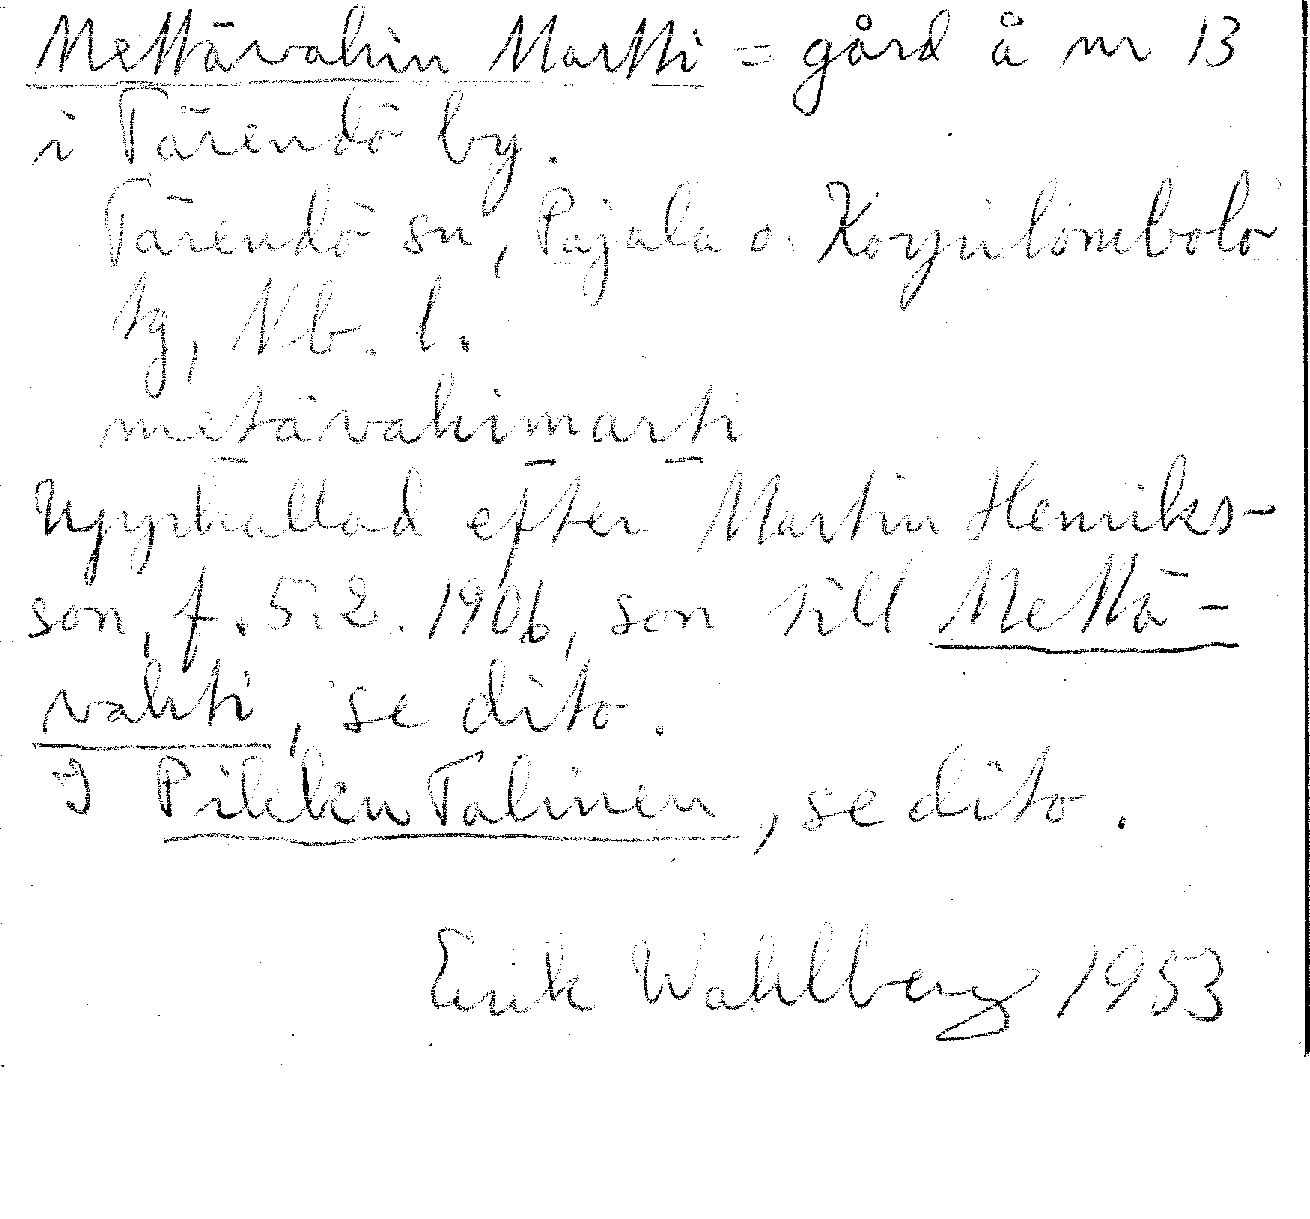 Mettävahin Martti = gård å nr 13
i Tärendö by.
Tärendö sn, Pajala o. Korpilombolo
tg, Nb. l.
metävahimarti
Uppkallad efter Martin Henriks-
son, f. 5.2.1906, son till Mettä-
vahti, se dito.
I Pikku Talinen, se dito.
Erik Wahlberg 1953